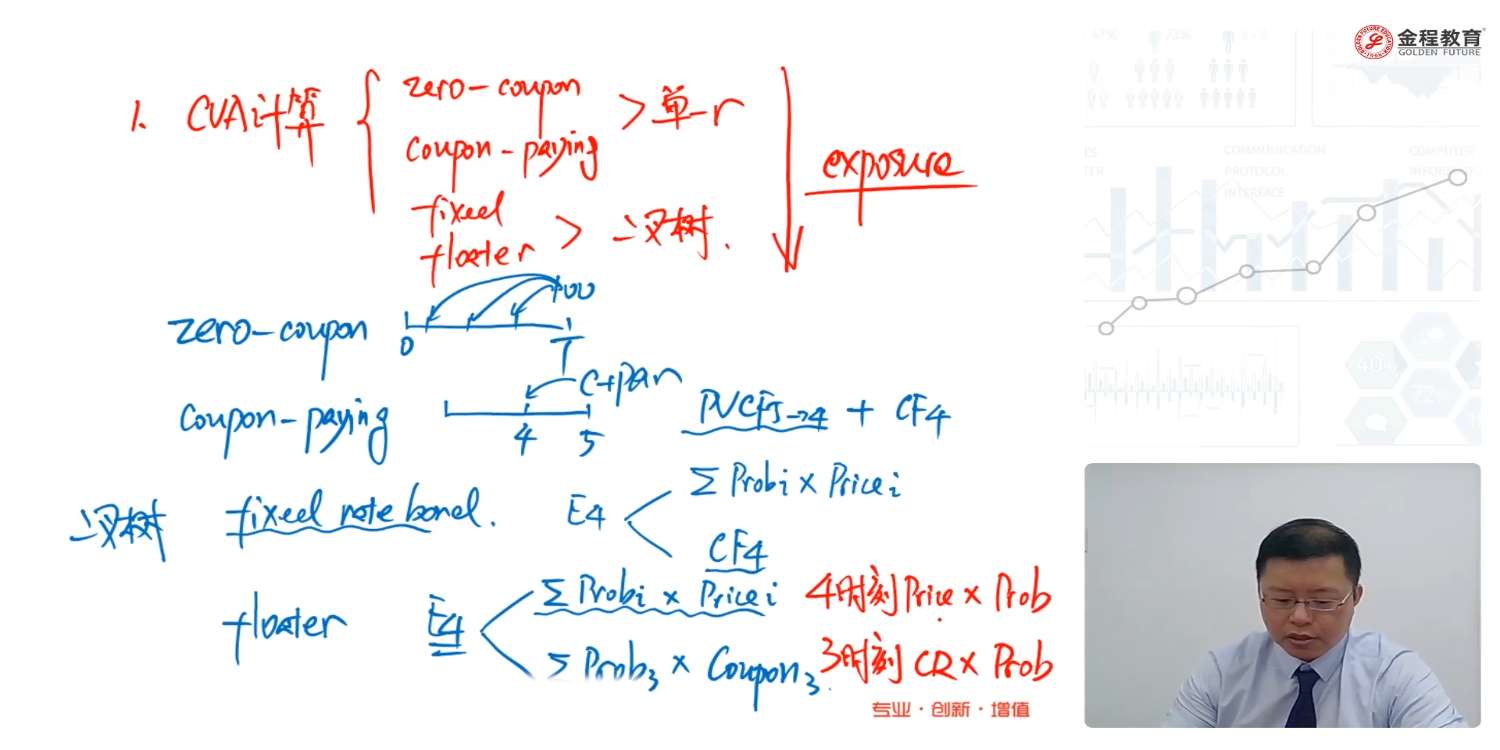 金程教育
GOLDEN FUTURE
1. CVA计算
zero-coupon
coupon-paying
> 单一r
fixed
floater
> 二叉树.
exposure
zero-coupon
0
100
T
coupon-paying
C+par
4
5
PVCF5→4 + CF4
二叉树
fixed rate bond.
E4
Σ Probi × Pricei
CF4
floater
E4
Σ Probi × Pricei
4时刻 Price × Prob
Σ Prob3 × Coupon3.
3时刻 CR × Prob
专业·创新·增值
COMMUNICATION
PROTOCOL
INTERFACE